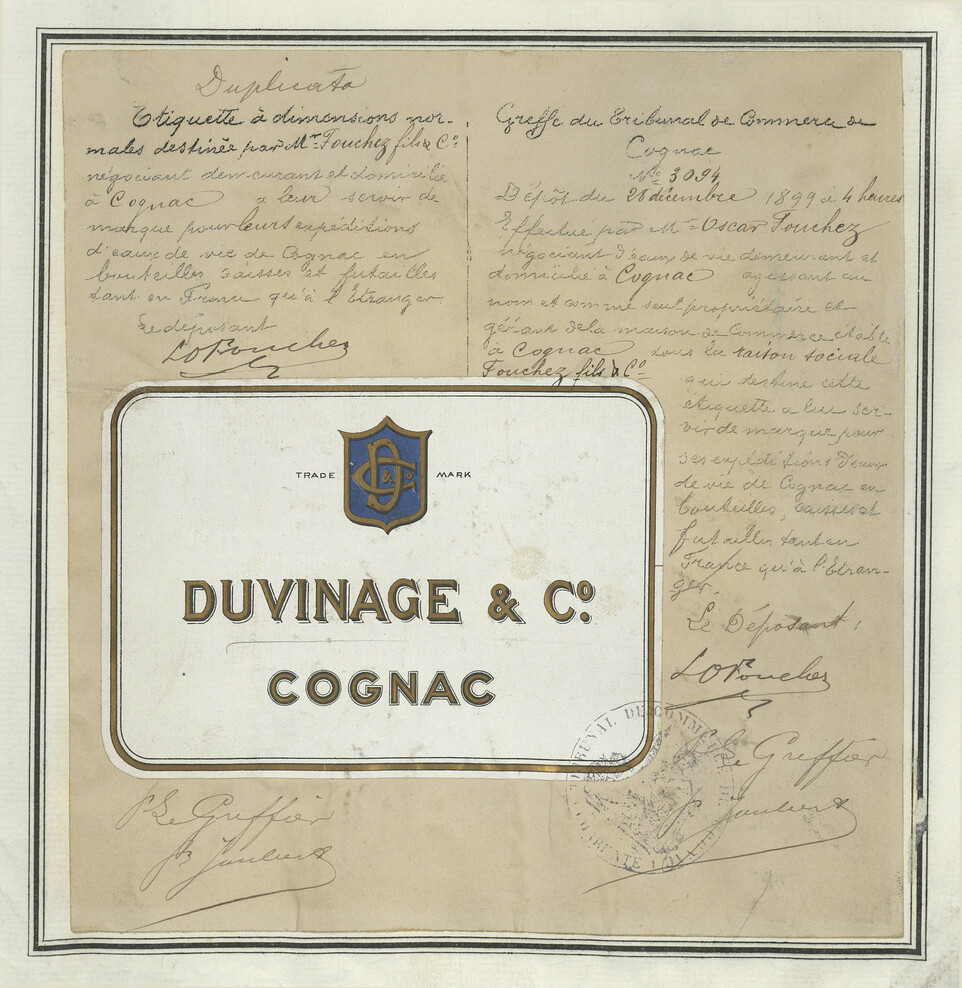 Duplicata
Etiquette à dimensions nor-
males destinée par Mr Fouchez fils & Cº
négociant demeurant et domicilié
à Cognac a leur servir de
marque pour leurs expéditions
d'eaux de vie de Cognac en
bouteilles caisses et futailles
tant en France qu'à l'Etranger
Le déposant
LOFouchez
Greffe du Tribunal de Commerce de
Cognac
Nº 3094
Dépôt du 28 décembre 1899 à 4 heures
Effectué par Mr Oscar Fouchez
négociant d'eaux de vie demeurant et
domicilié à Cognac agissant au
nom et comme seul propriétaire et
gérant de la maison de Commerce établie
à Cognac sous la raison sociale
Fouchez fils & Cº
qui destine cette
etiquette a leur ser-
vir de marque pour
ses expéditions d'eaux
de vie de Cognac en
bouteilles, caisses et
futailles tant en
France qu'à l'Etran-
ger.
Le Déposant :
LOFouchez
TRADE MARK
D & Co
DUVINAGE & Cº.
COGNAC
TRIBUNAL DE COMMERCE DE
CHARENTE
P Le Greffier
Joubert
P Le Greffier
Joubert